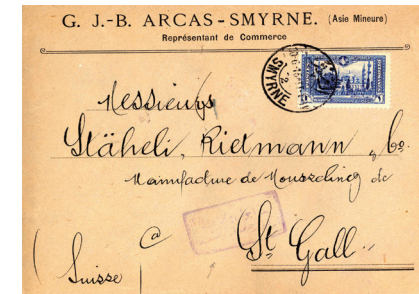 G. J.-B. ARCAS - SMYRNE. (Asie Mineure)
Représentant de Commerce
SMYRNE
Messieurs
Stäheli, Rietmann & Co.
Manufacture de Mousseline de
à St Gall
(Suisse)